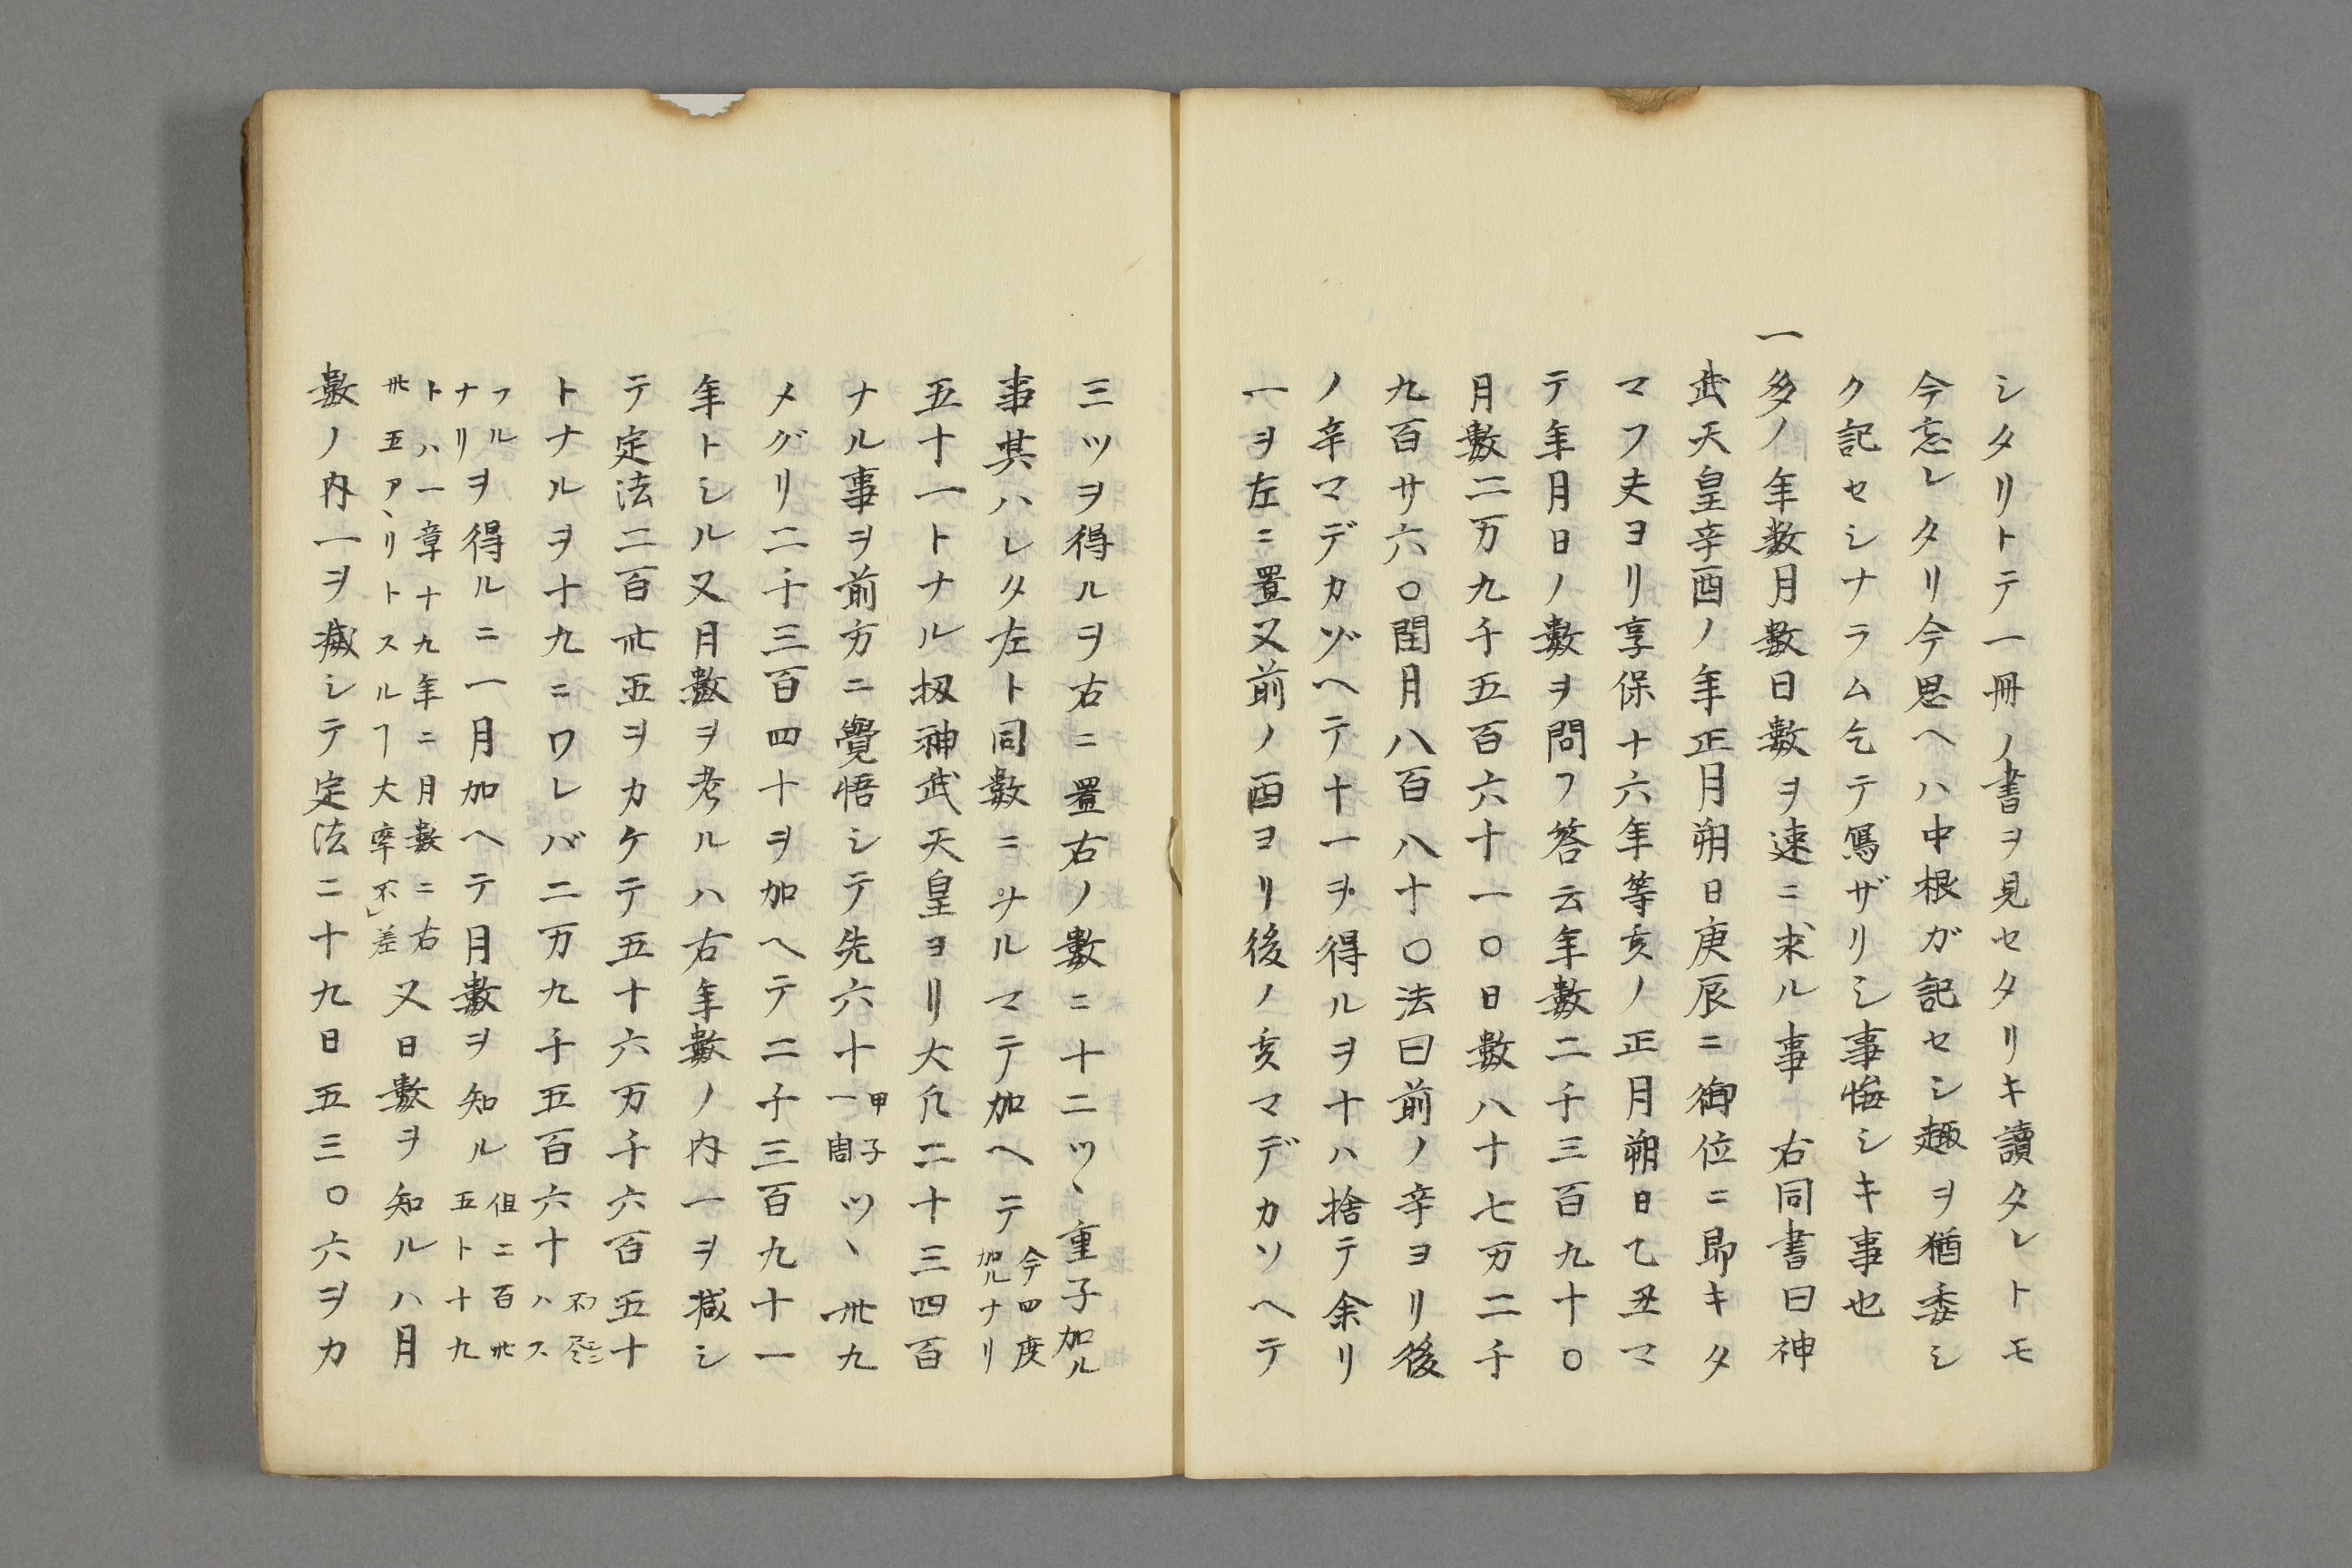 シタリトテ一冊ノ書ヲ見セタリキ讀タレトモ
今忘レタリ今思ヘハ中根ガ記セシ趣ヲ猶委シ
ク記セシナラム乞テ寫ザリシ事悔シキ事也
一多ノ年数月數日數ヲ速ニ求ル事右同書曰神
武天皇辛酉ノ年正月朔日庚辰ニ御位ニ即キタ
マフ夫ヨリ享保十六年等亥ノ正月朔日乙丑マ
テ年月日ノ數ヲ問フ答云年數二千三百九十〇
月數二万九千五百六十一〇日數八十七万二千
九百廿六〇閏月八百八十〇法曰前ノ辛ヨリ後
ノ辛マデカゾヘテ十一ヲ得ルヲ十ハ捨テ余リ
一ヲ左ニ置又前ノ酉ヨリ後ノ亥マデカソヘテ
三ツヲ得ルヲ右ニ置右ノ數ニ十二ツヽ重子加ル
事其ハレタ左ト同數ニナルマテ加ヘテ今四度
加ルナリ
五十一トナル扨神武天皇ヨリ大凢二十三四百
ナル事ヲ前方ニ覺悟シテ先六十甲子
一周ツヽ卅九
メグリ二千三百四十ヲ加ヘテ二千三百九十一
年トシル又月數ヲ考ルハ右年數ノ内一ヲ减シ
テ定法二百卅五ヲカケテ五十六万千六百五十
トナルヲ十九ニワレバ二万九千五百六十不尽
ハス
フル
ナリヲ得ルニ一月加ヘテ月數ヲ知ル但二百卅
五ト十九
トハ一章十九年ニ月數ニ右
卅五アヽリトスルヿ大率不差又日數ヲ知ルハ月
數ノ内一ヲ减シテ定法ニ十九日五三〇六ヲカ